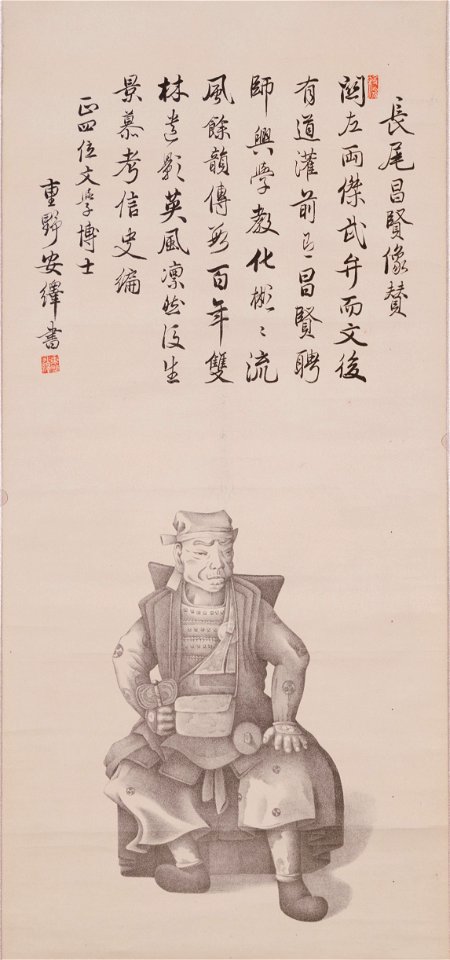 長尾昌賢像賛
関左両傑武弁而文後
有道灌前昌賢聘
師興學教化彬〻流
風餘韻傳百年雙
林遺影英風凛然後生
景慕考信史編
正四位文學博士
重野安繹書